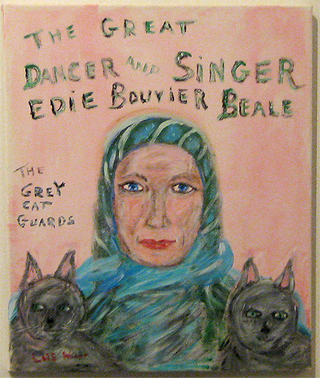 THE GREAT
DANCER AND SINGER
EDIE BOUVIER BEALE
THE
GREY
CAT
GUARDS